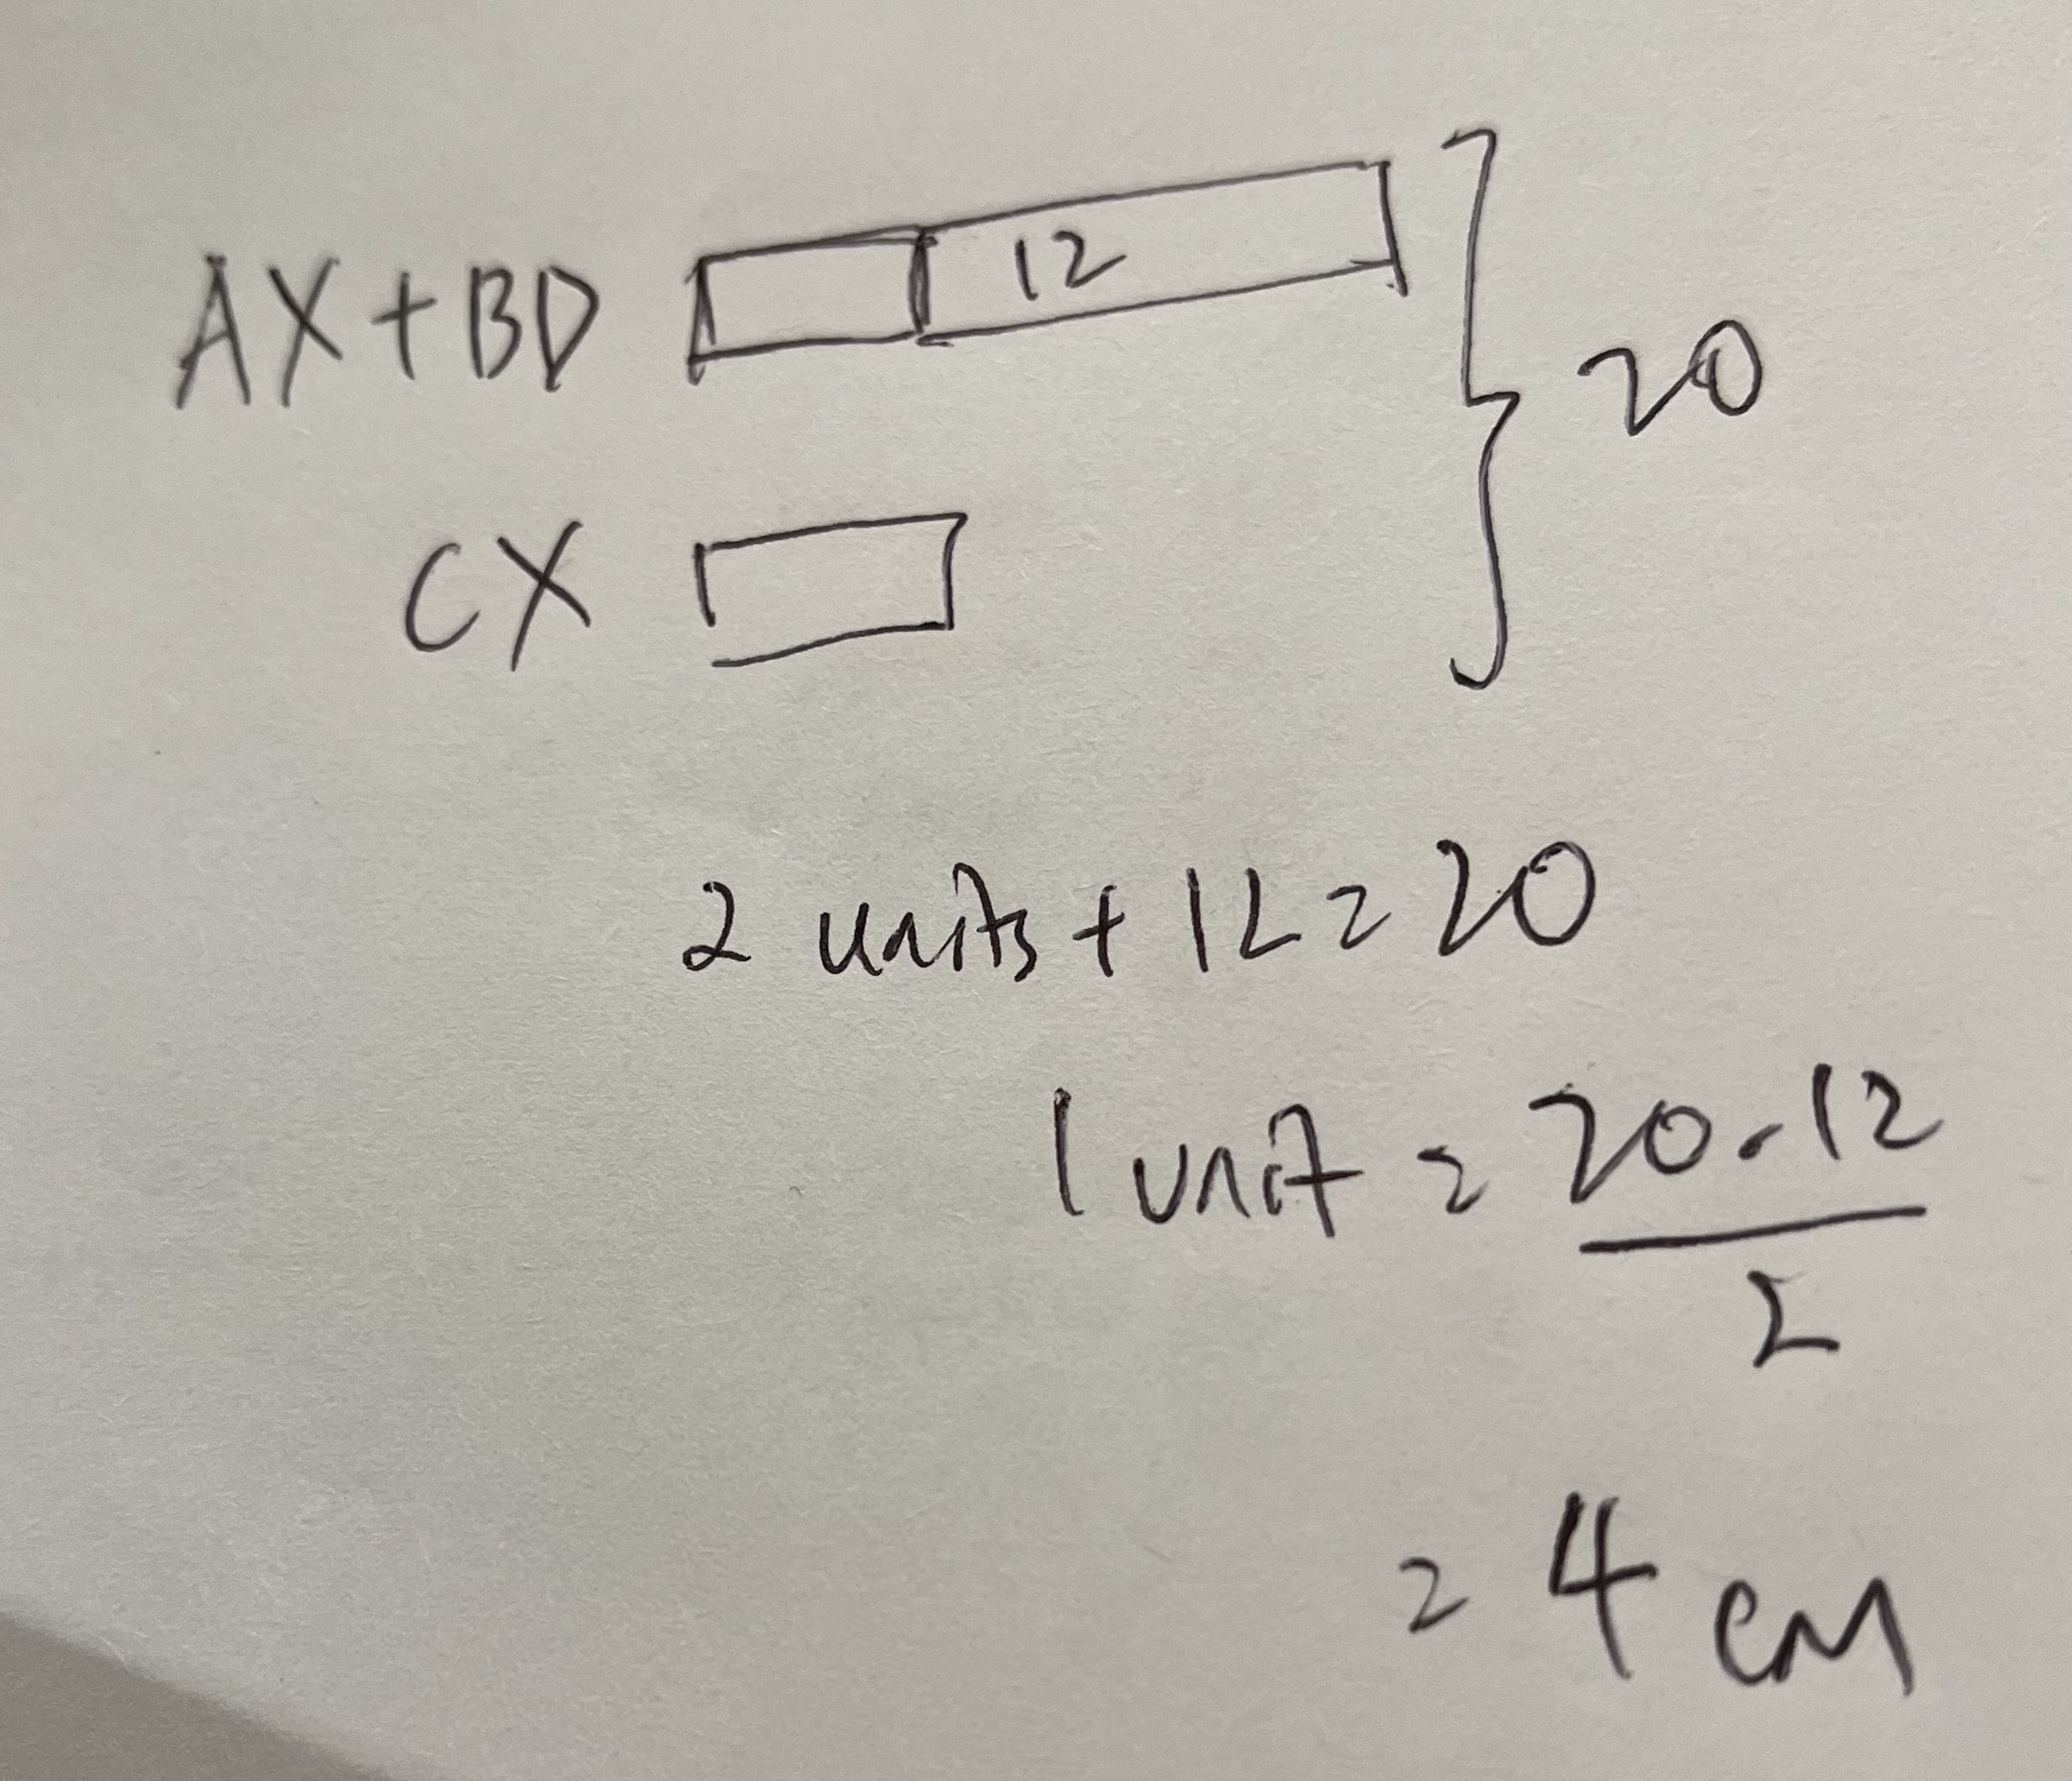 AX+BD 12
20
CX
2 units + 12 = 20
1 unit = 20-12
2
= 4 cm